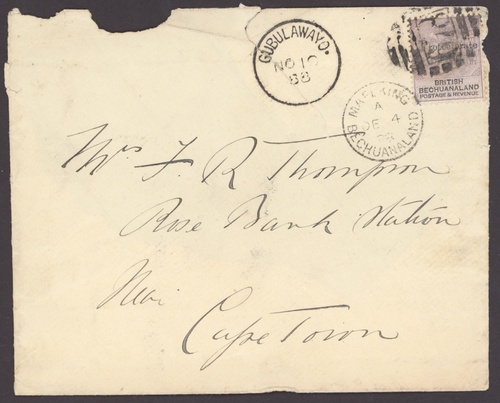 GUBULAWAYO.
NO 10
88
Protectorate
BRITISH
BECHUANALAND
POSTAGE & REVENUE
MAFEKING
A
DE 4
88
BECHUANALAND
Mrs F. R Thompson
Rose Bank Station
Near
Cape Town